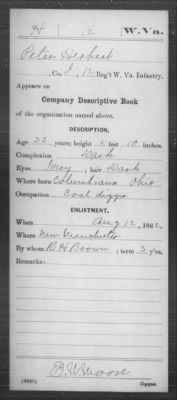 H 12 W. Va.
Peter Herbert
, Co. E, 12 Reg't W. Va. Infantry.
Appears on
Company Descriptive Book
of the organization named above.
DESCRIPTION.
Age 32 years; height 5 feet 10 inches.
Complexion Dark
Eyes Gray; hair Dark
Where born Columbiana Ohio
Occupation Coal digger
ENLISTMENT.
When Aug 12, 1862.
Where New Manchester
By whom B H Brown; term 3 y'rs.
Remarks:
E. W. Moore
Copyist.